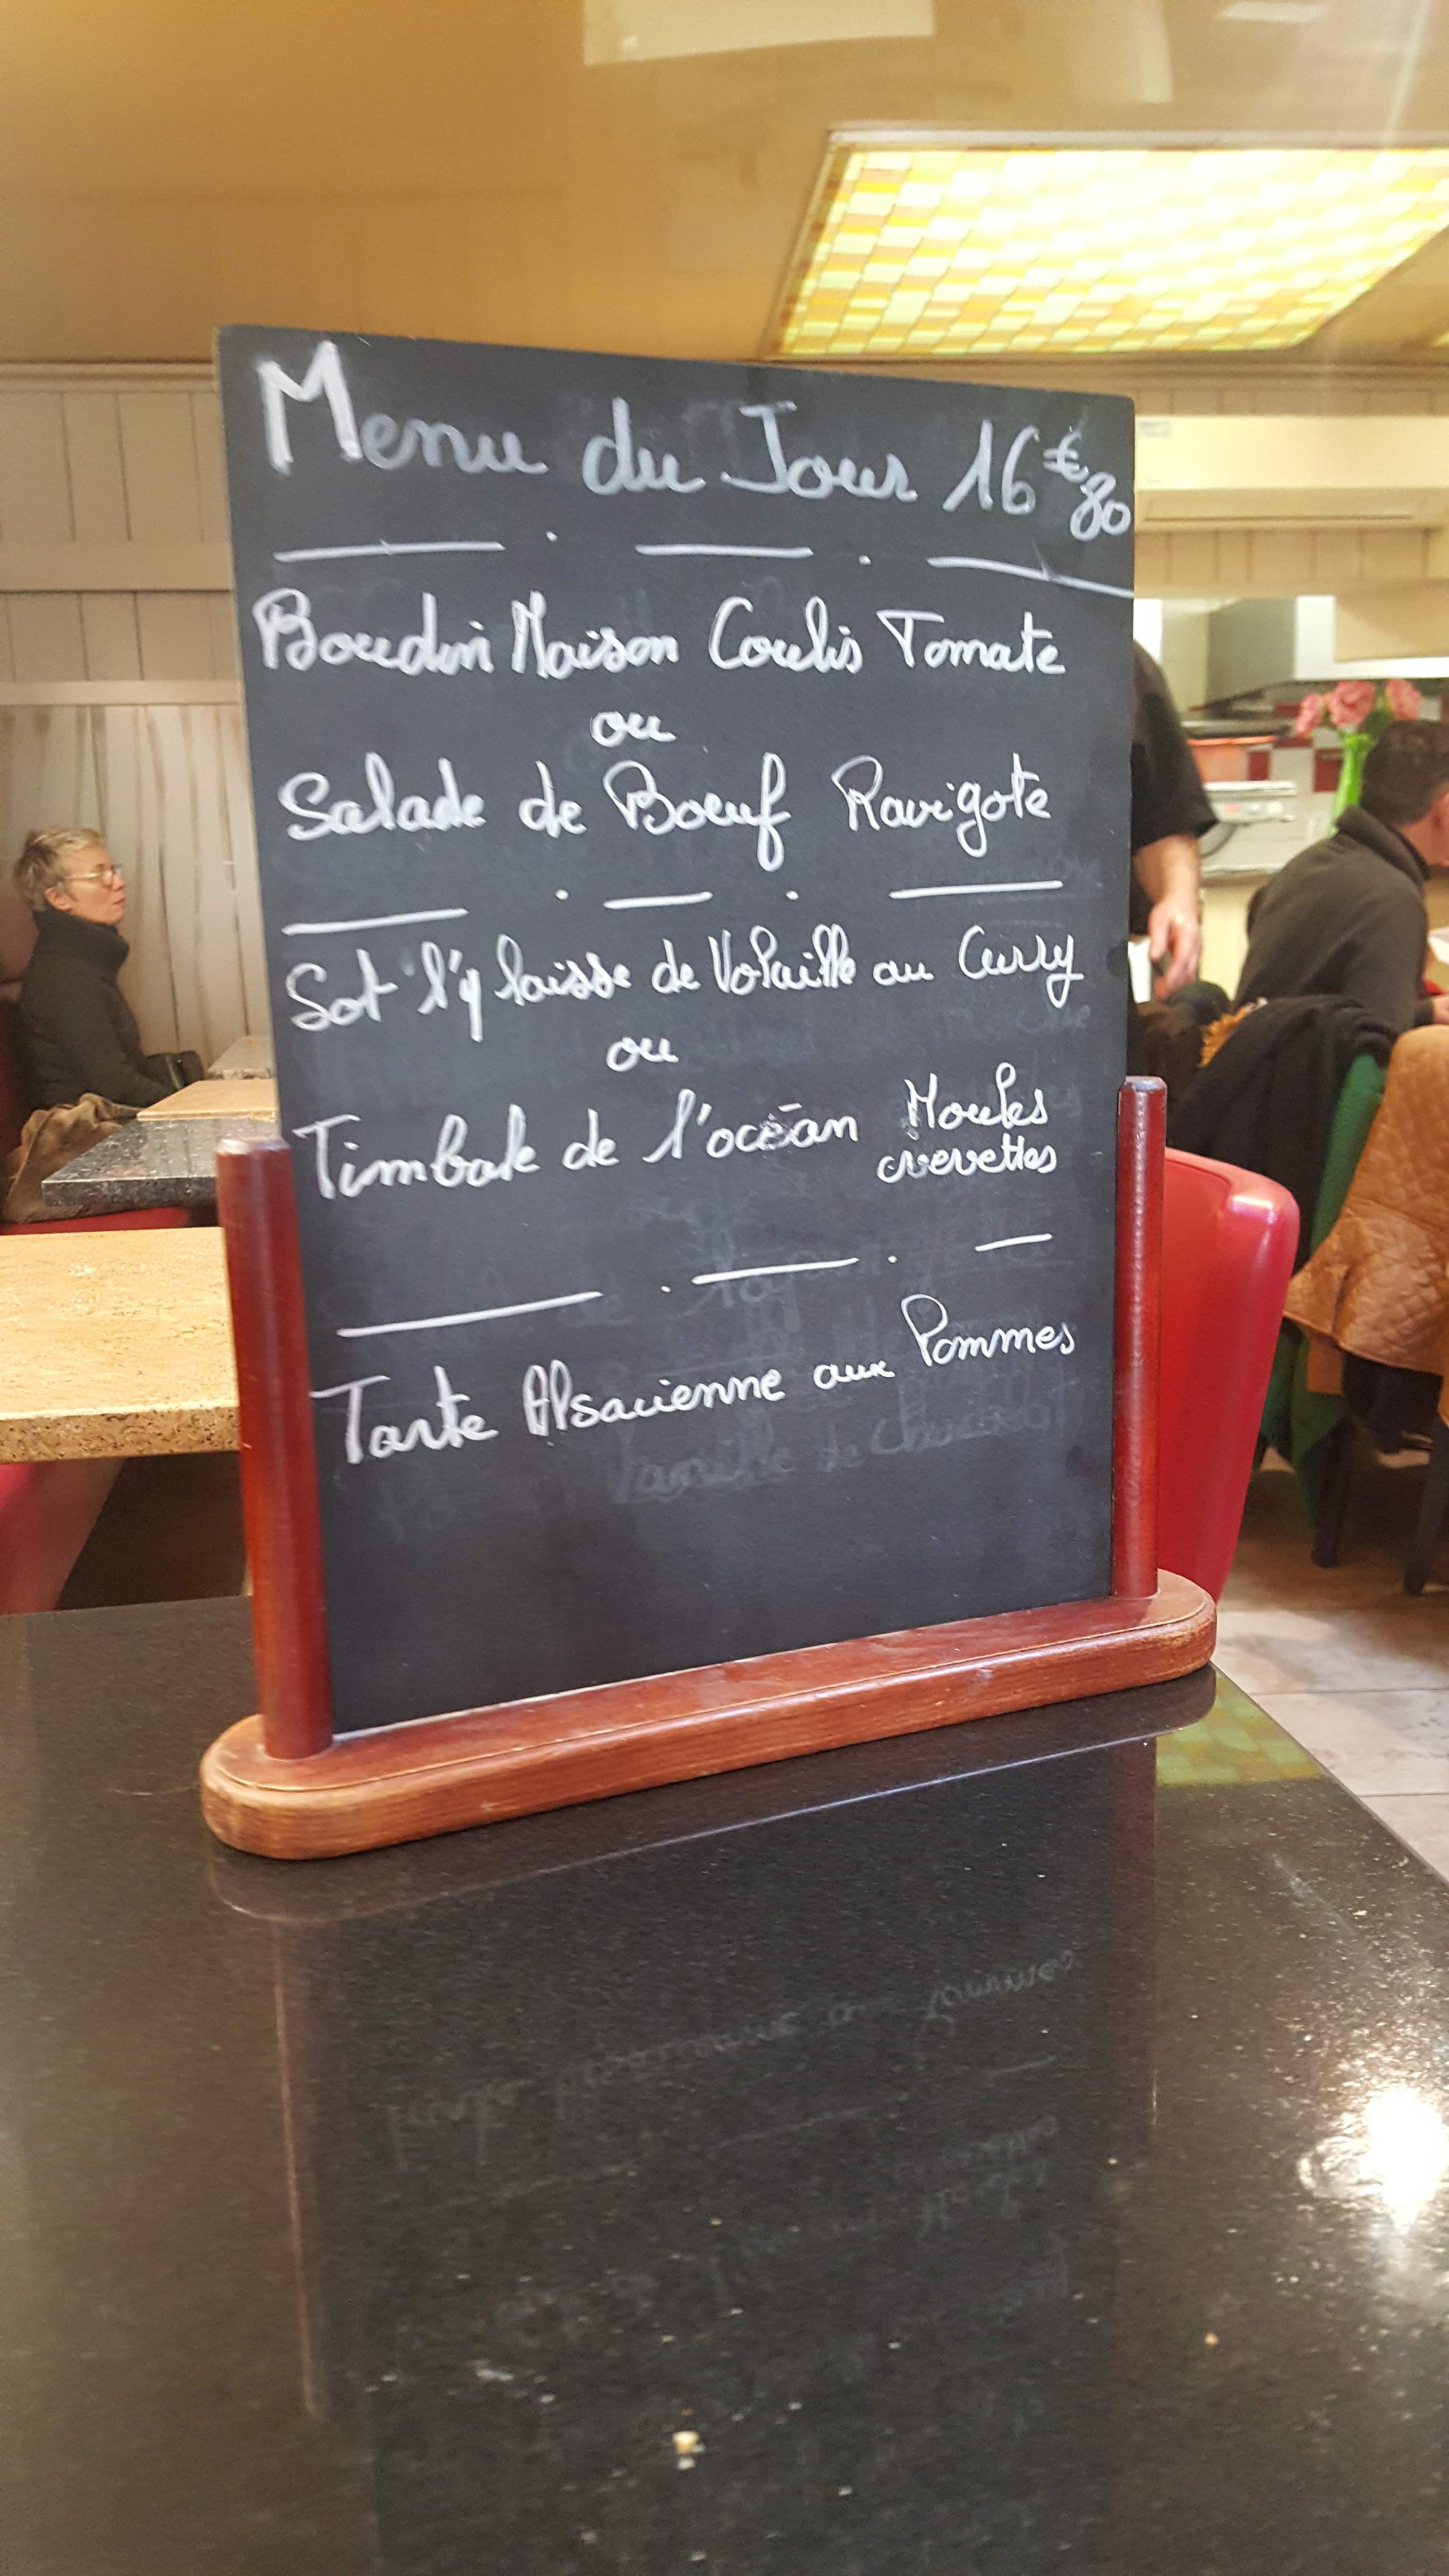 Menu du Jour 16€80
Boudin Maison Coulis Tomate
ou
Salade de Boeuf Ravigote
Sot l'y laisse de Volaille au Curry
ou
Timbale de l'océan Moules
crevettes
Tarte Alsacienne aux Pommes
Vanille de